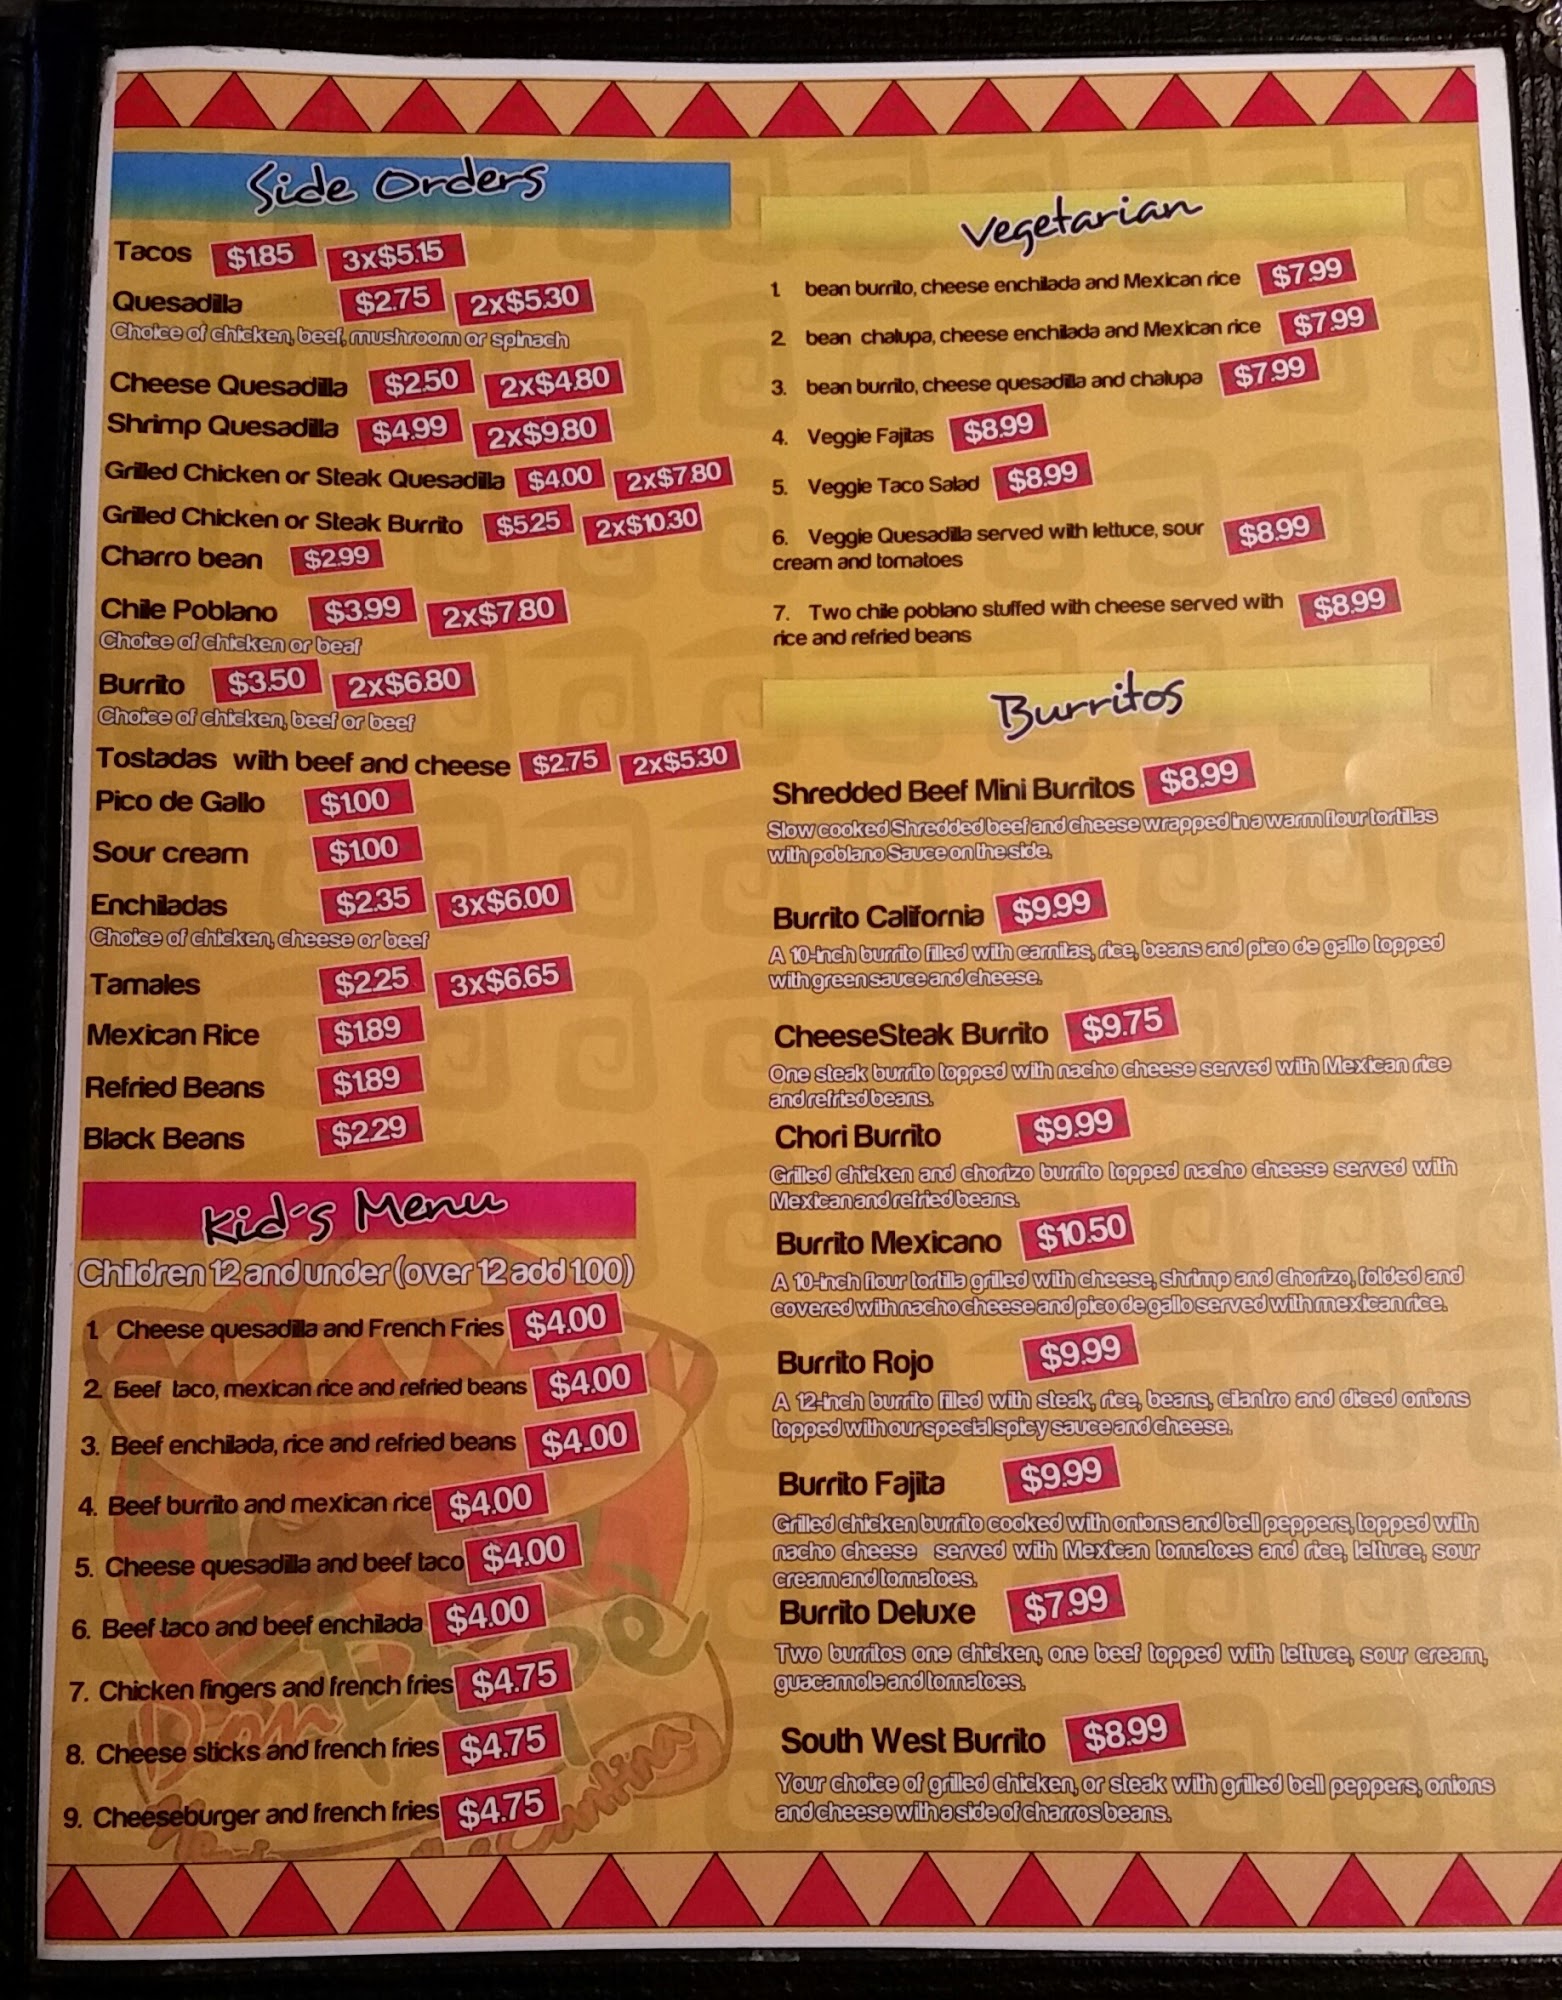 Side Orders
Tacos $1.85 3x$5.15
Quesadilla $2.75 2x$5.30
Choice of chicken, beef, mushroom or spinach
Cheese Quesadilla $2.50 2x$4.80
Shrimp Quesadilla $4.99 2x$9.80
Grilled Chicken or Steak Quesadilla $4.00 2x$7.80
Grilled Chicken or Steak Burrito $5.25 2x$10.30
Charro bean $2.99
Chile Poblano $3.99 2x$7.80
Choice of chicken or beaf
Burrito $3.50 2x$6.80
Choice of chicken, beef or beef
Tostadas with beef and cheese $2.75 2x$5.30
Pico de Gallo $1.00
Sour cream $1.00
Enchiladas $2.35 3x$6.00
Choice of chicken, cheese or beef
Tamales $2.25 3x$6.65
Mexican Rice $1.89
Refried Beans $1.89
Black Beans $2.29
Kid's Menu
Children 12 and under (over 12 add 1.00)
1. Cheese quesadilla and French Fries $4.00
2. Beef taco, mexican rice and refried beans $4.00
3. Beef enchilada, rice and refried beans $4.00
4. Beef burrito and mexican rice $4.00
5. Cheese quesadilla and beef taco $4.00
6. Beef taco and beef enchilada $4.00
7. Chicken fingers and french fries $4.75
8. Cheese sticks and french fries $4.75
9. Cheeseburger and french fries $4.75
Don Pepe
Cantina
Vegetarian
1. bean burrito, cheese enchilada and Mexican rice $7.99
2. bean chalupa, cheese enchilada and Mexican rice $7.99
3. bean burrito, cheese quesadilla and chalupa $7.99
4. Veggie Fajitas $8.99
5. Veggie Taco Salad $8.99
6. Veggie Quesadilla served with lettuce, sour $8.99
cream and tomatoes
7. Two chile poblano stuffed with cheese served with $8.99
rice and refried beans
Burritos
Shredded Beef Mini Burritos $8.99
Slow cooked Shredded beef and cheese wrapped in a warm flour tortillas
with poblano Sauce on the side.
Burrito California $9.99
A 10-inch burrito filled with carnitas, rice, beans and pico de gallo topped
with green sauce and cheese.
CheeseSteak Burrito $9.75
One steak burrito topped with nacho cheese served with Mexican rice
and refried beans.
Chori Burrito $9.99
Grilled chicken and chorizo burrito topped nacho cheese served with
Mexican and refried beans.
Burrito Mexicano $10.50
A 10-inch flour tortilla grilled with cheese, shrimp and chorizo, folded and
covered with nacho cheese and pico de gallo served with mexican rice.
Burrito Rojo $9.99
A 12-inch burrito filled with steak, rice, beans, cilantro and diced onions
topped with our special spicy sauce and cheese.
Burrito Fajita $9.99
Grilled chicken burrito cooked with onions and bell peppers, topped with
nacho cheese served with Mexican tomatoes and rice, lettuce, sour
cream and tomatoes.
Burrito Deluxe $7.99
Two burritos one chicken, one beef topped with lettuce, sour cream,
guacamole and tomatoes.
South West Burrito $8.99
Your choice of grilled chicken, or steak with grilled bell peppers, onions
and cheese with a side of charros beans.